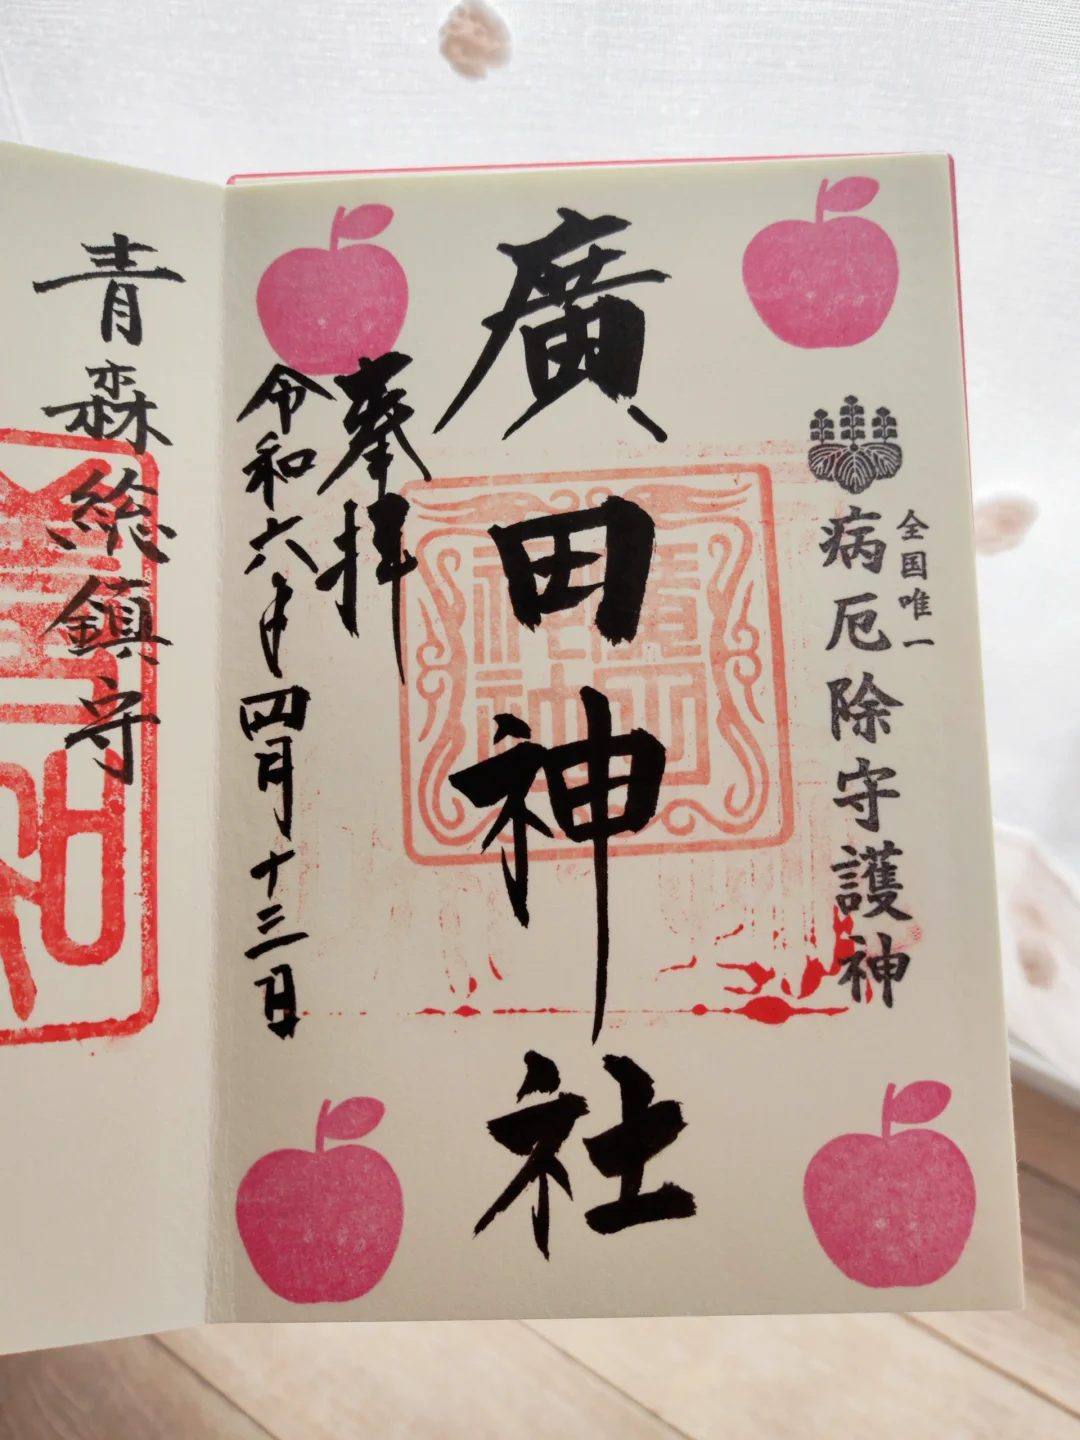 全国唯一
病厄除守護神
廣田神社
奉拝
令和六年四月十三日
青森総鎮守